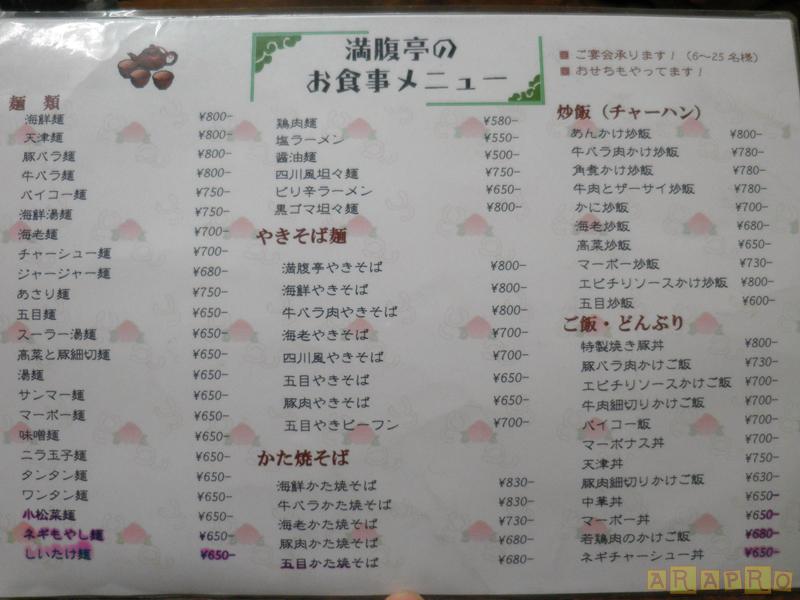 満腹亭の
お食事メニュー
■ ご宴会承ります！（6～25名様）
■ おせちもやってます！
麺 類
海鮮麺 ¥800-
天津麺 ¥800-
豚バラ麺 ¥800-
牛バラ麺 ¥800-
パイコー麺 ¥750-
海鮮湯麺 ¥750-
海老麺 ¥700-
チャーシュー麺 ¥700-
ジャージャー麺 ¥680-
あさり麺 ¥750-
五目麺 ¥650-
スーラー湯麺 ¥650-
高菜と豚細切麺 ¥650-
湯麺 ¥650-
サンマー麺 ¥650-
マーボー麺 ¥650-
味噌麺 ¥650-
ニラ玉子麺 ¥650-
タンタン麺 ¥650-
ワンタン麺 ¥650-
小松菜麺 ¥650-
ネギもやし麺 ¥650-
しいたけ麺 ¥650-
鶏肉麺 ¥580-
塩ラーメン ¥550-
醤油麺 ¥500-
四川風坦々麺 ¥750-
ピリ辛ラーメン ¥650-
黒ゴマ坦々麺 ¥800-
やきそば麺
満腹亭やきそば ¥800-
海鮮やきそば ¥800-
牛バラ肉やきそば ¥800-
海老やきそば ¥700-
四川風やきそば ¥700-
五目やきそば ¥650-
豚肉やきそば ¥650-
五目やきビーフン ¥700-
かた焼そば
海鮮かた焼そば ¥830-
牛バラかた焼そば ¥830-
海老かた焼そば ¥730-
豚肉かた焼そば ¥680-
五目かた焼そば ¥680-
炒飯（チャーハン）
あんかけ炒飯 ¥800-
牛バラ肉かけ炒飯 ¥780-
角煮かけ炒飯 ¥780-
牛肉とザーサイ炒飯 ¥780-
かに炒飯 ¥700-
海老炒飯 ¥680-
高菜炒飯 ¥650-
マーボー炒飯 ¥730-
エビチリソースかけ炒飯 ¥800-
五目炒飯 ¥600-
ご飯・どんぶり
特製焼き豚丼 ¥800-
豚バラ肉かけご飯 ¥730-
エビチリソースかけご飯 ¥700-
牛肉細切りかけご飯 ¥700-
パイコー飯 ¥700-
マーボナス丼 ¥700-
天津丼 ¥750-
豚肉細切りかけご飯 ¥630-
中華丼 ¥650-
マーボー丼 ¥650-
若鶏肉のかけご飯 ¥680-
ネギチャーシュー丼 ¥650-
ARAPRO